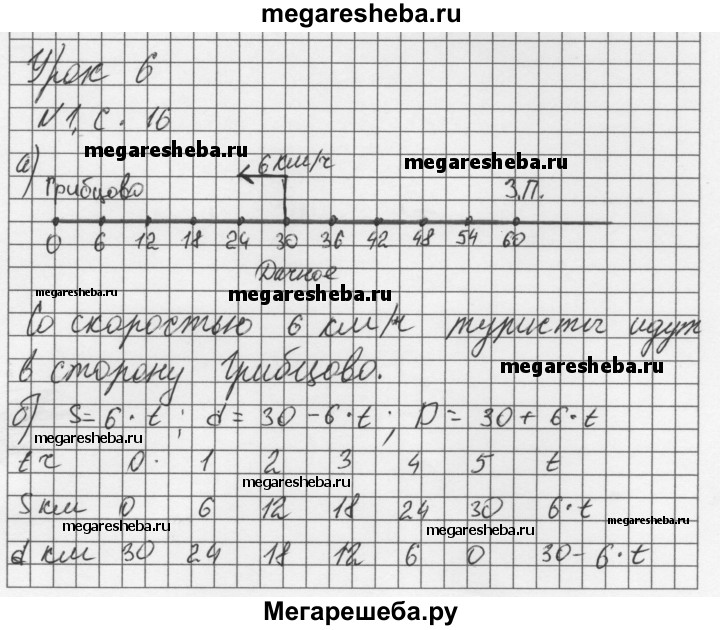 megaresheba.ru
Урок 6
N1, с. 16
megaresheba.ru
а) 6 км/ч megaresheba.ru
Грибцово З.П.
0 6 12 18 24 30 36 42 48 54 60
Дачное
megaresheba.ru megaresheba.ru
Со скоростью 6 км/ч туристы идут
в сторону Грибцово. megaresheba.ru
б) S = 6 · t ; d = 30 - 6 · t ; D = 30 + 6 · t
megaresheba.ru
t ч 0 · 1 2 3 4 5 t
megaresheba.ru
S км 0 6 12 18 24 30 6 · t
megaresheba.ru megaresheba.ru megaresheba.ru
d км 30 24 18 12 6 0 30 - 6 · t
Мегарешеба.ру